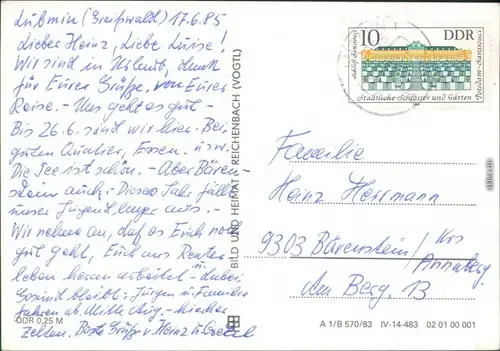 Lubmin (Greifswald) 17.6.85
Lieber Heinz, Liebe Luise!
Wir sind in Urlaub, dankt
für Eure Grüße von Eurer
Reise. - Uns geht es gut -
Bis 26.6. sind wir hier. Bei
guten Quatier, Essen. u.s.w.
Die See ist schön. - Aber Bären-
stein auch. - Dieses Jahr fällt
unser Jugendlager aus. -
Wir nehmen an, daß es Euch noch
gut geht, Euch als Rentner
leben heran arbeitet - u. dabei
Gesund bleibt. - Jürgen u. Familie
fahren ab Mitte Aug. - hierher
Zelten. Beste Grüße v. Heinz u.
DDR 0,25 M
BILD UND HEIMAT REICHENBACH (VOGTL)
10 DDR
Schloß Sanssouci
Potsdam-Sanssouci
Staatliche Schlösser und Gärten
Familie
Heinz Herrmann
9303 Bärenstein/Krs
Annaberg
Am Berg. 13
A 1/B 570/83 IV-14-483 02 01 00 001